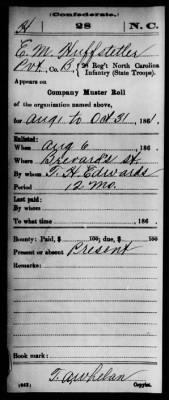 (Confederate.)
H 28 N. C.
E. M. Huffstetler
Pvt, Co. B, 28 Reg't North Carolina
Infantry (State Troops).
Appears on
Company Muster Roll
of the organization named above,
for Aug 1 to Oct 31, 1861.
Enlisted:
When Aug 6, 186 .
Where Brevards St.
By whom T. H. Edwards
Period 12 mo.
Last paid:
By whom
To what time , 186 .
Bounty: Paid, $ 100; due, $ 100
Present or absent Present
Remarks:
Book mark:
T. A. Whelan
(642) Copyist.